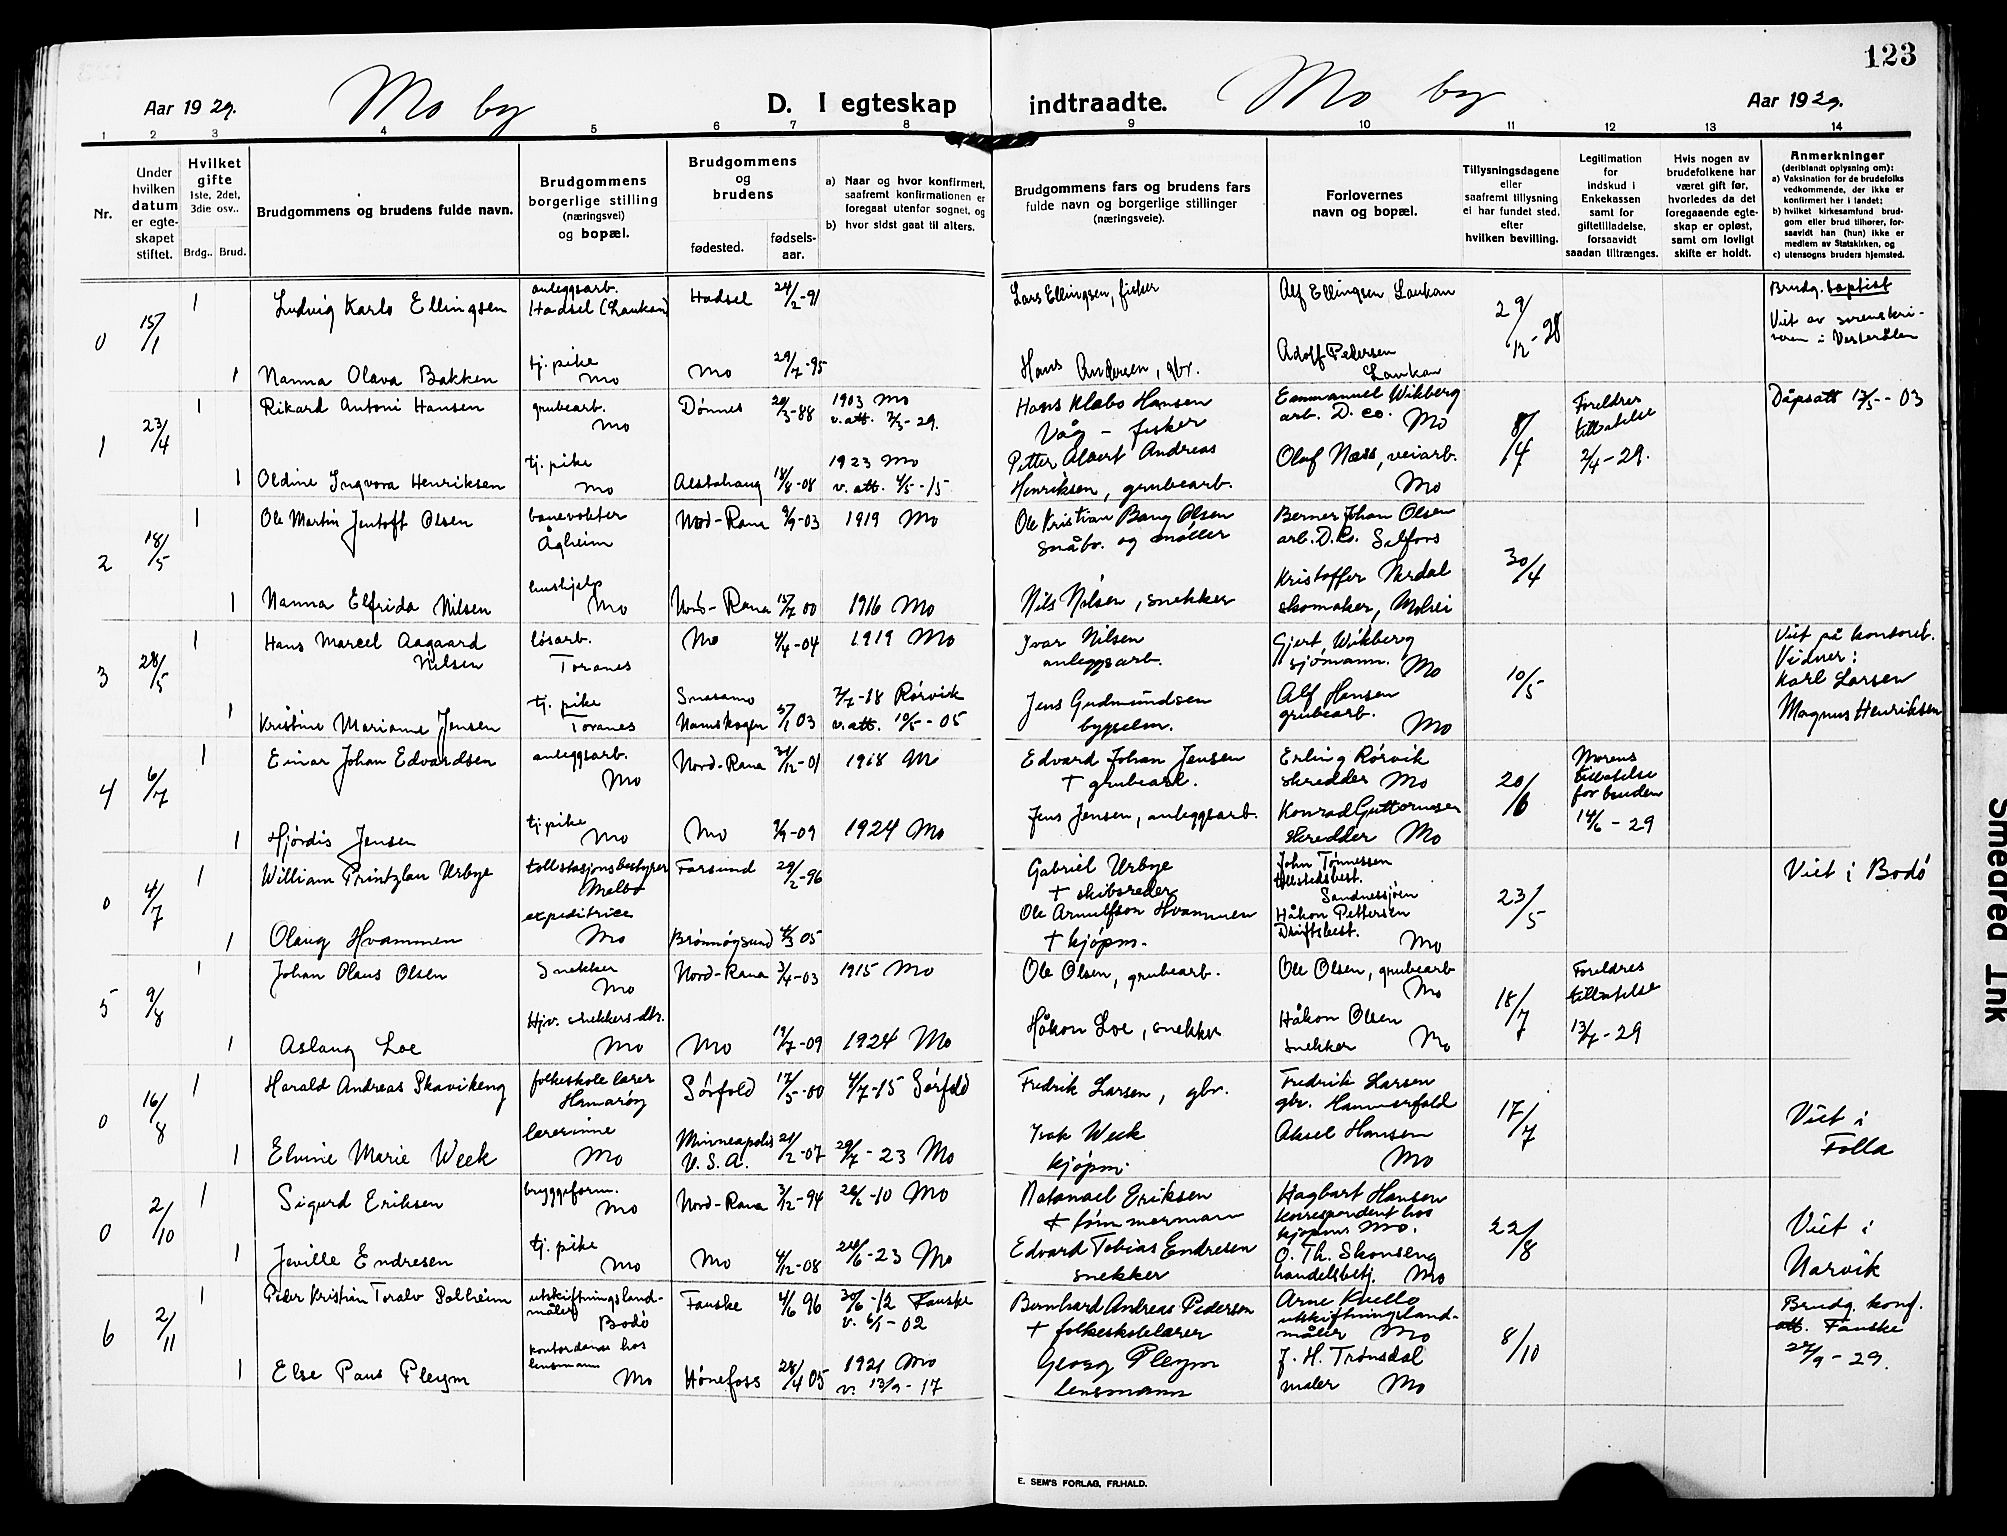 123
Aar 1929. Mo by D. I egteskap indtraadte. Mo by Aar 1929.
1 2 3 4 5 6 7 8 9 10 11 12 13 14
Nr.
Under hvilken datum er egteskapet stiftet.
Hvilket gifte
1ste, 2det, 3die osv..
Brdg.. Brud.
Brudgommens og brudens fulde navn.
Brudgommens borgerlige stilling
(næringsvei)
og bopæl.
Brudgommens og brudens
fødested.
fødsels-
aar.
a) Naar og hvor konfirmert, saafremt konfirmationen er foregaat utenfor sognet, og
b) hvor sidst gaat til alters.
Brudgommens fars og brudens fars
fulde navn og borgerlige stillinger
(næringsveie).
Forlovernes
navn og bopæl.
Tillysningsdagene
eller
saafremt tillysning
ei har fundet sted,
efter
hvilken bevilling.
Legitimation
for
indskud i
Enkekassen
samt for
giftetilladelse,
forsaavidt
saadan tiltrænges.
Hvis nogen av
brudefolkene har
været gift før,
hvorledes da det
foregaaende egte-
skap er opløst,
samt om lovligt
skifte er holdt.
Anmerkninger
(deriblandt oplysning om):
a) Vaksination for de brudefolks
vedkommende, der ikke er
konfirmert her i landet:
b) hvilket kirkesamfund brud-
gom eller brud tilhører, for-
saavidt han (hun) ikke er
medlem av Statskirken, og
c) utensogns bruders hjemsted.
0 15/1 1 Ludvig Karlo Ellingsen anleggsarb. Hadsel (Laukan) Hadsel 24/2-91 Lars Ellingsen, fisker Alf Ellingsen Laukan 29/12-28 Brudg. baptist
Viet av sorenskri-
veren i Vesterålen
1 Nanna Olava Bakken tj. pike Mo Mo 29/7-95 Hans Andersen, gbr. Adolf Pedersen Laukan
1 23/4 1 Rikard Antoni Hansen grubearb. Mo Dønnes 20/3-88 1903 Mo v. att. 7/3-29. Hans Klæbo Hansen Våg - fisker Emmanuel Wikberg arb. D. Co. Mo 8/4 Foreldres tillatelse 2/4-29. Dåpsatt 17/5-03
1 Oldine Ingvora Henriksen tj. pike Mo Alstahaug 18/8-08 1923 Mo v. att. 4/5-15 Petter Albert Andreas Henriksen, grubearb. Olaf Næss, veiarb. Mo
2 18/5 1 Ole Martin Jentoft Olsen banevokter Ågheim Nord-Rana 9/9-03 1919 Mo Ole Kristian Bang Olsen småbr. og møller Berner Johan Olsen arb. D. Co. Selfors 30/4
1 Nanna Elfrida Nilsen hushjelp Mo Nord-Rana 15/7 00 1916 Mo Nils Nilsen, snekker Kristoffer Nerdal skomaker, Mohei
3 28/5 1 Hans Marcel Aagaard Nilsen løsarb. Toranes Mo 4/4-04 1919 Mo Ivar Nilsen anleggsarb. Gjert Wikberg sjømann. Mo 10/5 Viet på kontoret.
Vidner:
Karl Larsen
Magnus Henriksen
1 Kristine Marianne Jensen tj. pike Toranes Namskogen 5/1 03 7/7-18 Rørvik v. att. 10/5-05 Jens Gudmundsen Alf Hansen grubearb. Mo
4 6/7 1 Einar Johan Edvardsen anleggsarb. Mo Nord-Rana 31/12-01 1918 Mo Edvard Johan Jensen + grubearb. Erling Rørvik skredder Mo 20/6 Morens tillatelse for bruden 14/6-29
1 Hjørdis Jensen tj. pike Mo Mo 3/9-09 1924 Mo Jens Jensen, anleggsarb. Konrad Guttormsen skredder Mo
0 4/7 1 William Printzlau Urbye tollstasjonsbestyrer Melbo Farsund 29/2-96 Gabriel Urbye + skibsreder John Tønnessen tollstedsbest. Sandnessjøen 23/5 Viet i Bodø
1 Olaug Hvammen expeditrice Mo Brønnøysund 4/3 05 Ole Arnulfson Hvammen + kjøpm. Håkon Pettersen Driftsbest. Mo
5 9/8 1 Johan Olaus Olsen Snekker Mo Nord-Rana 3/4-03 1915 Mo Ole Olsen, grubearb. Ole Olsen, grubearb Mo 18/7 Foreldres tillatelse 13/7-29
1 Aslaug Loe Hjv. snekkers dtr. Mo Mo 19/7-09 1924 Mo Håkon Loe, snekker Håkon Olsen snekker Mo
0 16/8 1 Harald Andreas Skavikeng folkeskolelærer Hamarøy Sørfold 17/5-00 4/7-15 Sørfold Fredrik Larsen, gbr. Fredrik Larsen gbr. Hammerfald 17/7 Viet i
Folla
1 Elvine Marie Week lærerinne Mo Minneapolis U.S.A. 21/2-07 29/7-23 Mo Isak Week kjøpm. Aksel Hansen Mo
0 2/10 1 Sigurd Eriksen bryggeform. Mo Nord-Rana 3/12-94 26/6-10 Mo Natanael Eriksen Hagbart Hansen korrespondent hos kjøpmr Mo. 22/8 Viet i
Narvik
1 Jeville Endresen tj. pike Mo Mo 4/12-08 24/6-23 Mo Edvard Tobias Endresen snekker O. Th. Skonseng handelsbetj. Mo
6 2/11 1 Peder Kristian Toralv Solheim utskiftningsland-
måler Bodø Fauske 4/6 96 30/6-12 Fauske v. 6/1-02 Bernhard Andreas Pedersen + folkeskolelærer Arne Kvello utskiftningsland-
måler Mo 8/10 Brudg. konf.
att. Fauske
27/9-29.
1 Else Paus Pleym kontordame hos lensmann Mo Hønefoss 28/4 05 1921 Mo v. 13/9-17 Georg Pleym lensmann J. H. Trønsdal maler Mo
E. SEM'S FORLAG, FR.HALD.
Smeared Ink